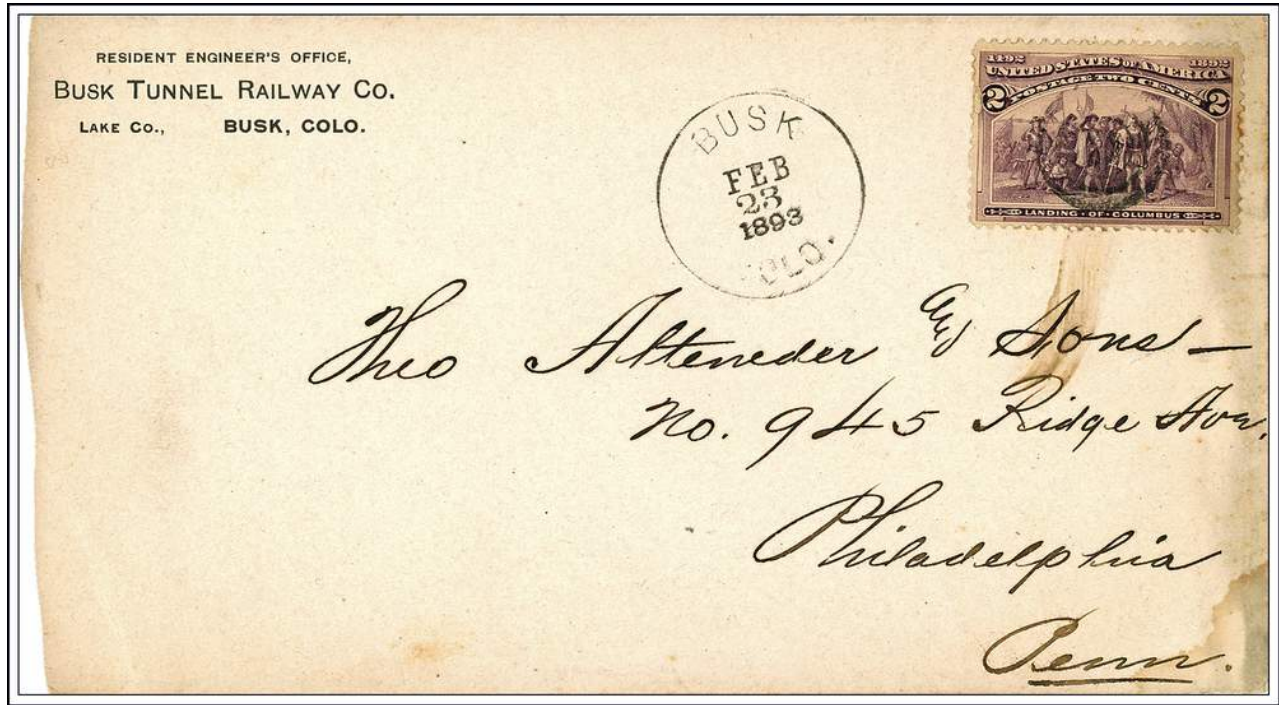 RESIDENT ENGINEER'S OFFICE,
BUSK TUNNEL RAILWAY CO.
LAKE CO., BUSK, COLO.
BUSK
FEB
23
1893
OLO.
1492 1892
UNITED STATES OF AMERICA
POSTAGE TWO CENTS
2 2
LANDING · OF · COLUMBUS
Theo Alteneder and Sons —
No. 945 Ridge Ave.
Philadelphia
Penn.